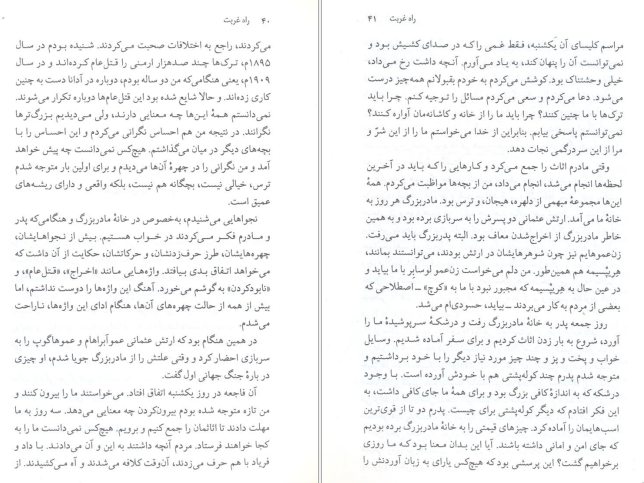 ۴۰ راه غربت
می‌کردند، راجع به اختلافات صحبت می‌کردند. شنیده بودم در سال
۱۸۹۵م، ترک‌ها چند صدهزار ارمنی را قتل‌عام کرده‌اند و در سال
۱۹۰۹م، یعنی هنگامی‌که من دو ساله بودم، دوباره در آدانا دست به چنین
کاری زده‌اند. و حالا شایع شده بود این قتل‌عام‌ها دوباره تکرار می‌شوند.
نمی‌دانستم همهٔ این‌ها چه معنایی دارند، ولی می‌دیدیم بزرگ‌ترها
نگرانند. در نتیجه من هم احساس نگرانی می‌کردم و این احساس را با
بچه‌های دیگر در میان می‌گذاشتم. هیچ‌کس نمی‌دانست چه پیش خواهد
آمد و من نگرانی را در چهرهٔ آن‌ها می‌دیدم و برای اولین بار متوجه شدم
ترس، خیالی نیست، بچگانه هم نیست، بلکه واقعی و دارای ریشه‌های
عمیق است.
نجواهایی می‌شنیدم، به‌خصوص در خانهٔ مادربزرگ و هنگامی‌که پدر
و مادرم فکر می‌کردند در خواب هستیم. بیش از نجواهایشان،
چهره‌هایشان، طرز حرف‌زدنشان، و حرکاتشان، حکایت از آن داشت که
می‌خواهد اتفاق بدی بیافتد. واژه‌هایی مانند «اخراج»، «قتل‌عام»، و
«نابودکردن» به گوشم می‌خورد. آهنگ این واژه‌ها را دوست نداشتم، اما
بیش از همه از حالت چهره‌های آن‌ها، هنگام ادای این واژه‌ها، ناراحت
می‌شدم.
در همین هنگام بود که ارتش عثمانی عموآبراهام و عموهاگوپ را به
سربازی احضار کرد و وقتی علتش را از مادربزرگ جویا شدم، او چیزی
در بارهٔ جنگ جهانی اول گفت.
آن فاجعه در روز یکشنبه اتفاق افتاد. می‌خواستند ما را بیرون کنند و
من تازه متوجه شده بودم بیرون‌کردن چه معنایی می‌دهد. سه روز به ما
مهلت دادند تا اثاثمان را جمع کنیم و برویم. هیچ‌کس نمی‌دانست ما را به
کجا خواهند فرستاد. مردم آنچه داشتند به این و آن می‌دادند. با داد و
فریاد با هم حرف می‌زدند، آن‌وقت کلافه می‌شدند و آه می‌کشیدند. از
راه غربت ۴۱
مراسم کلیسای آن یکشنبه، فقط غمی را که در صدای کشیش بود و
نمی‌توانست آن را پنهان کند، به یاد می‌آورم. آنچه داشت رخ می‌داد،
خیلی وحشتناک بود. کوشش می‌کردم به خودم بقبولانم همه‌چیز درست
می‌شود. دعا می‌کردم و سعی می‌کردم مسائل را توجیه کنم. چرا باید
ترک‌ها با ما چنین کنند؟ چرا باید ما را از خانه و کاشانه‌مان آواره کنند؟
نمی‌توانستم پاسخی بیابم. بنابراین از خدا می‌خواستم ما را از این شرّ و
مرا از این سردرگمی نجات دهد.
وقتی مادرم اثاث را جمع می‌کرد و کارهایی را که باید در آخرین
لحظه‌ها انجام می‌شد، انجام می‌داد، من از بچه‌ها مواظبت می‌کردم. همهٔ
این‌ها مجموعهٔ مبهمی از دلهره، هیجان، و ترس بود. مادربزرگ هر روز به
خانهٔ ما می‌آمد. ارتش عثمانی دو پسرش را به سربازی برده بود و به همین
خاطر مادربزرگ از اخراج‌شدن معاف بود. البته پدربزرگ باید می‌رفت.
زن‌عموهایم نیز چون شوهرهایشان در ارتش بودند، می‌توانستند بمانند،
هریپسیمه هم همین‌طور. من دلم می‌خواست زن‌عمو لوسایر با ما بیاید و
در عین حال به هریپسیمه که مجبور نبود با ما به «کوچ» ـ اصطلاحی که
بعضی از مردم به کار می‌بردند ـ بیاید، حسودی‌ام می‌شد.
روز جمعه پدر به خانهٔ مادربزرگ رفت و درشکهٔ سرپوشیدهٔ ما را
آورد، شروع به بار زدن اثاث کردیم و برای سفر آماده شدیم. وسایل
خواب و پخت و پز و چند چیز مورد نیاز دیگر را با خود برداشتیم و
متوجه شدم پدرم چند کوله‌پشتی هم با خودش آورده است. با وجود
درشکه که به اندازهٔ کافی بزرگ بود و برای همهٔ ما جای کافی داشت، به
این فکر افتادم که دیگر کوله‌پشتی برای چیست. پدرم دو تا از قوی‌ترین
اسب‌هایمان را آماده کرد. چیزهای قیمتی را به خانهٔ مادربزرگ برده بودیم
که جای امن و امانی داشته باشند. آیا این بدان معنا بود که ما روزی
برخواهیم گشت؟ این پرسشی بود که هیچ‌کس یارای به زبان آوردنش را